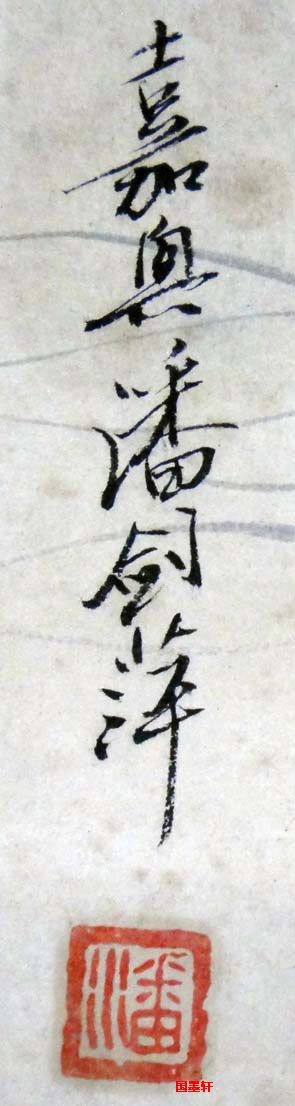 嘉興潘劍萍
潘
国墨轩